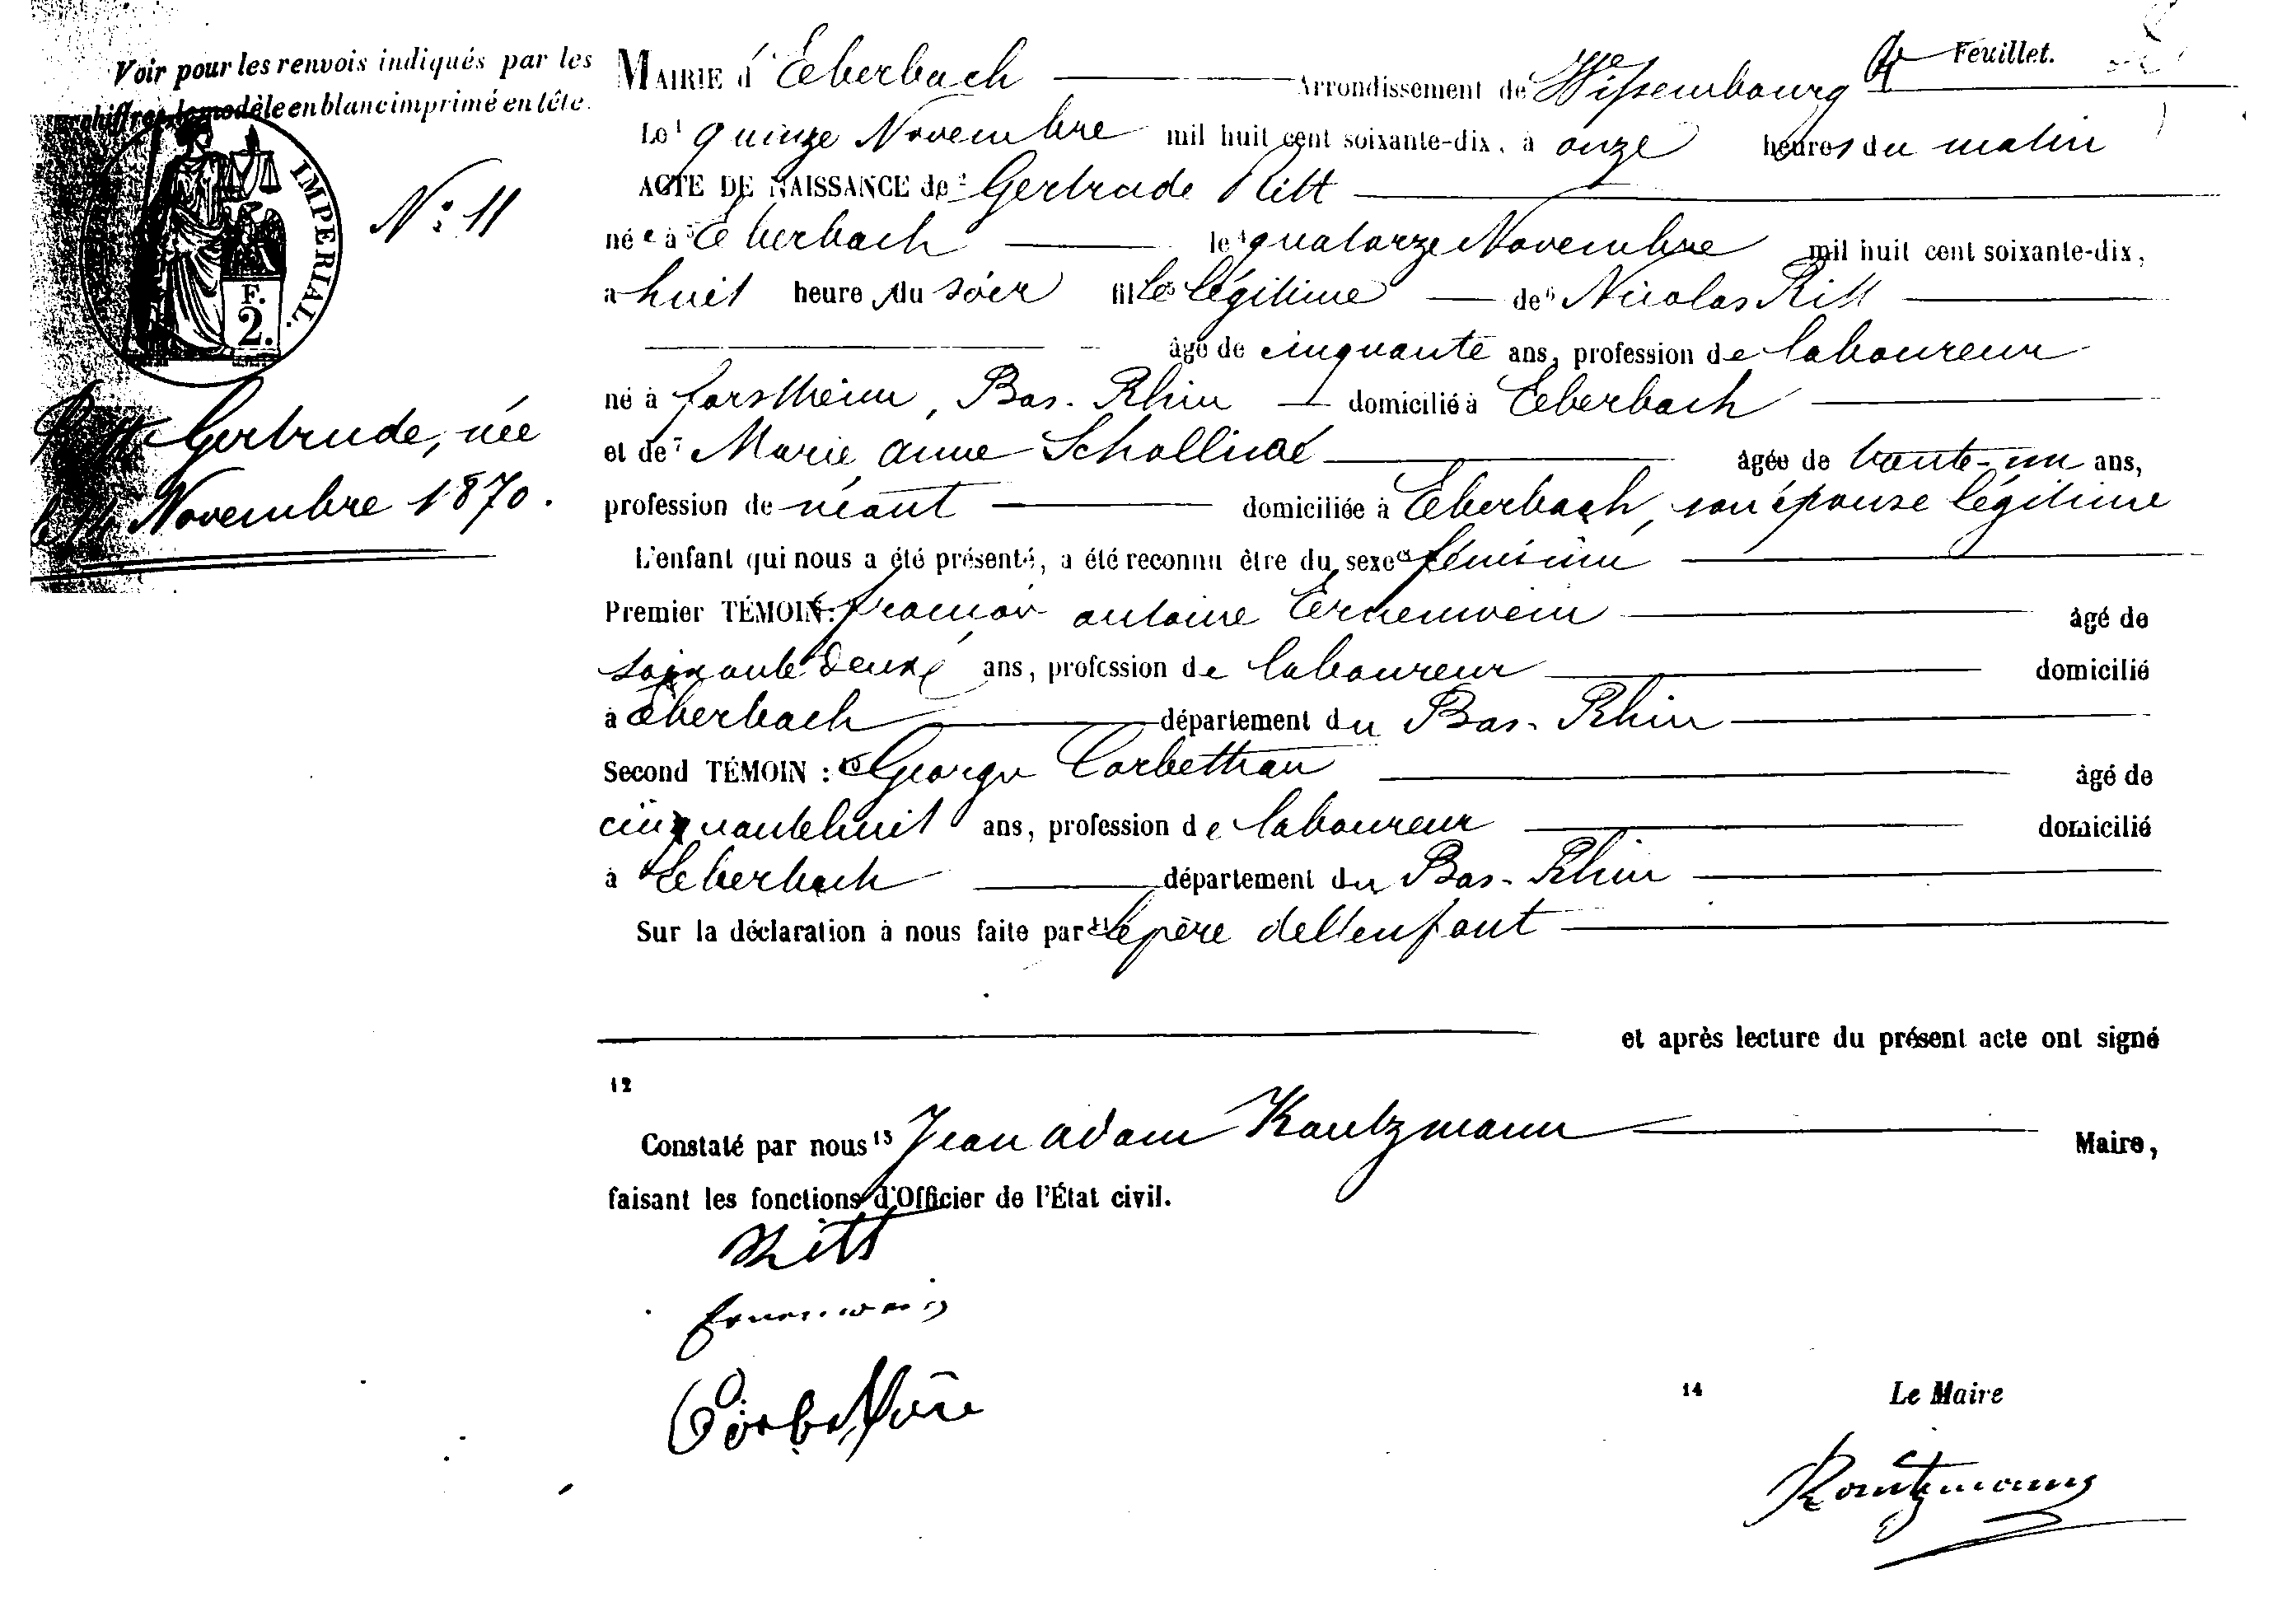 Voir pour les renvois indiqués par les
chiffres, le modèle en blanc imprimé en tête.
IMPERIAL.
F.
2.
N.º 11
Gertrude, née
le 14 Novembre 1870.
MAIRIE d'Eberbach Arrondissement de Wissembourg Feuillet.
Le 1 quinze Novembre mil huit cent soixante-dix, à onze heures du matin
ACTE DE NAISSANCE de 2 Gertrude Ritt
née à 3 Eberbach le 4 quatorze Novembre mil huit cent soixante-dix,
a huit heure du soir fille 5 légitime de 6 Nicolas Ritt
âgé de cinquante ans, profession de laboureur
né à forstheim, Bas-Rhin domicilié à Eberbach
et de 7 Marie anne âgée de trente-un ans,
profession de néant domiciliée à Eberbach, son épouse légitime
L'enfant qui nous a été présenté, a été reconnu être du sexe 8 féminin
Premier TÉMOIN: françois antoine Ernenwein âgé de
soixante deux ans, profession de laboureur domicilié
à Eberbach département du Bas-Rhin
Second TÉMOIN : 10 George Corbethau âgé de
cinquante huit ans, profession de laboureur domicilié
à Eberbach département du Bas-Rhin
Sur la déclaration à nous faite par 11 le père de l'enfant
et après lecture du présent acte ont signé
12
Constaté par nous 13 Jean adam Kautzmann Maire,
faisant les fonctions d'Officier de l'État civil.
Ritt
Ernenwein
14 Le Maire
Kautzmann